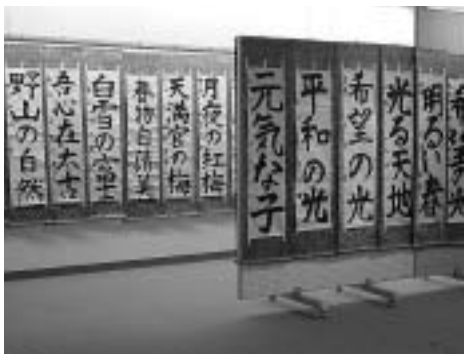 野山の自然
吾心在太古
白雪の富士
春物自清美
天満宮の梅
月夜の紅梅
元気な子
平和の光
希望の光
光る天地
明るい春